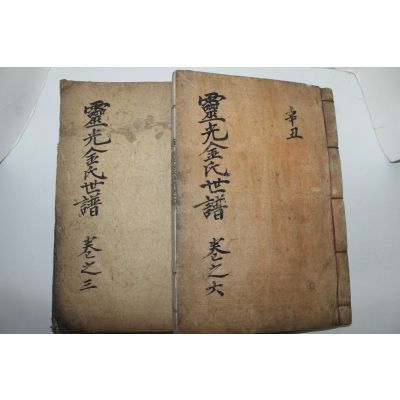 辛丑
靈光金氏世譜
卷之六
靈光金氏世譜
卷之三